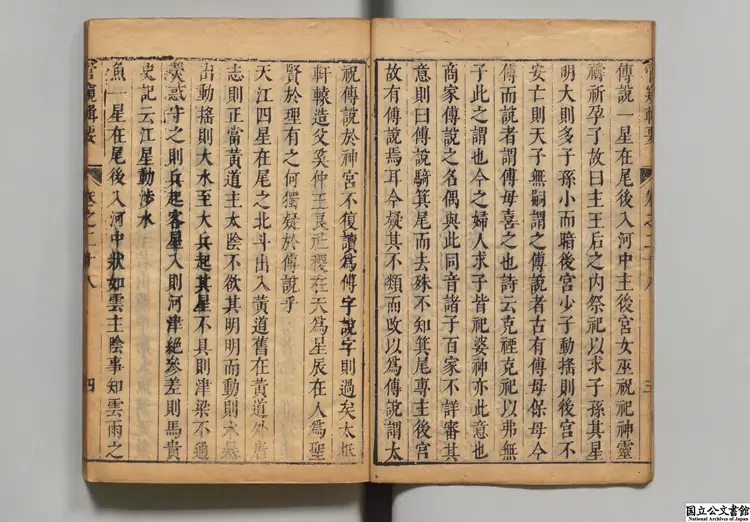 傳說一星在尾後入河中主後宮女巫祝祀神靈
禱祈孕子故曰主王后之內祭祀以求子孫其星
明大則多子孫小而暗後宮少子動搖則後宮不
安亡則天子無嗣謂之傳說者古有傅母保母今
傅而說者謂傅母喜之也詩云克禋克祀以弗無
子此之謂也今之婦人求子皆祀婆神亦此意也
商家傅說之名偶與此同音諸子百家不詳審其
意則曰傅說騎箕尾而去殊不知箕尾專主後宮
故有傅說焉耳今疑其不類而改以為傅說謂太
管窺輯要
卷之二十八
三
祝傅說於神宮不復讀為傅字說字則過矣太抵
軒轅造父奚仲王良社稷在天為星辰在人為聖
賢於理有之何獨疑於傅說乎
天江四星在尾之北斗出入黃道舊在黃道外唐
志則正當黃道主太陰不欲其明明而動則水暴
出動搖則大水至大兵起其星不具則津梁不通
熒惑守之則兵起客星入則河津絕參差則馬貴
史記云江星動涉水
魚一星在尾後入河中狀如雲主陰事知雲雨之
管窺輯要
卷之二十八
四
国立公文書館
National Archives of Japan